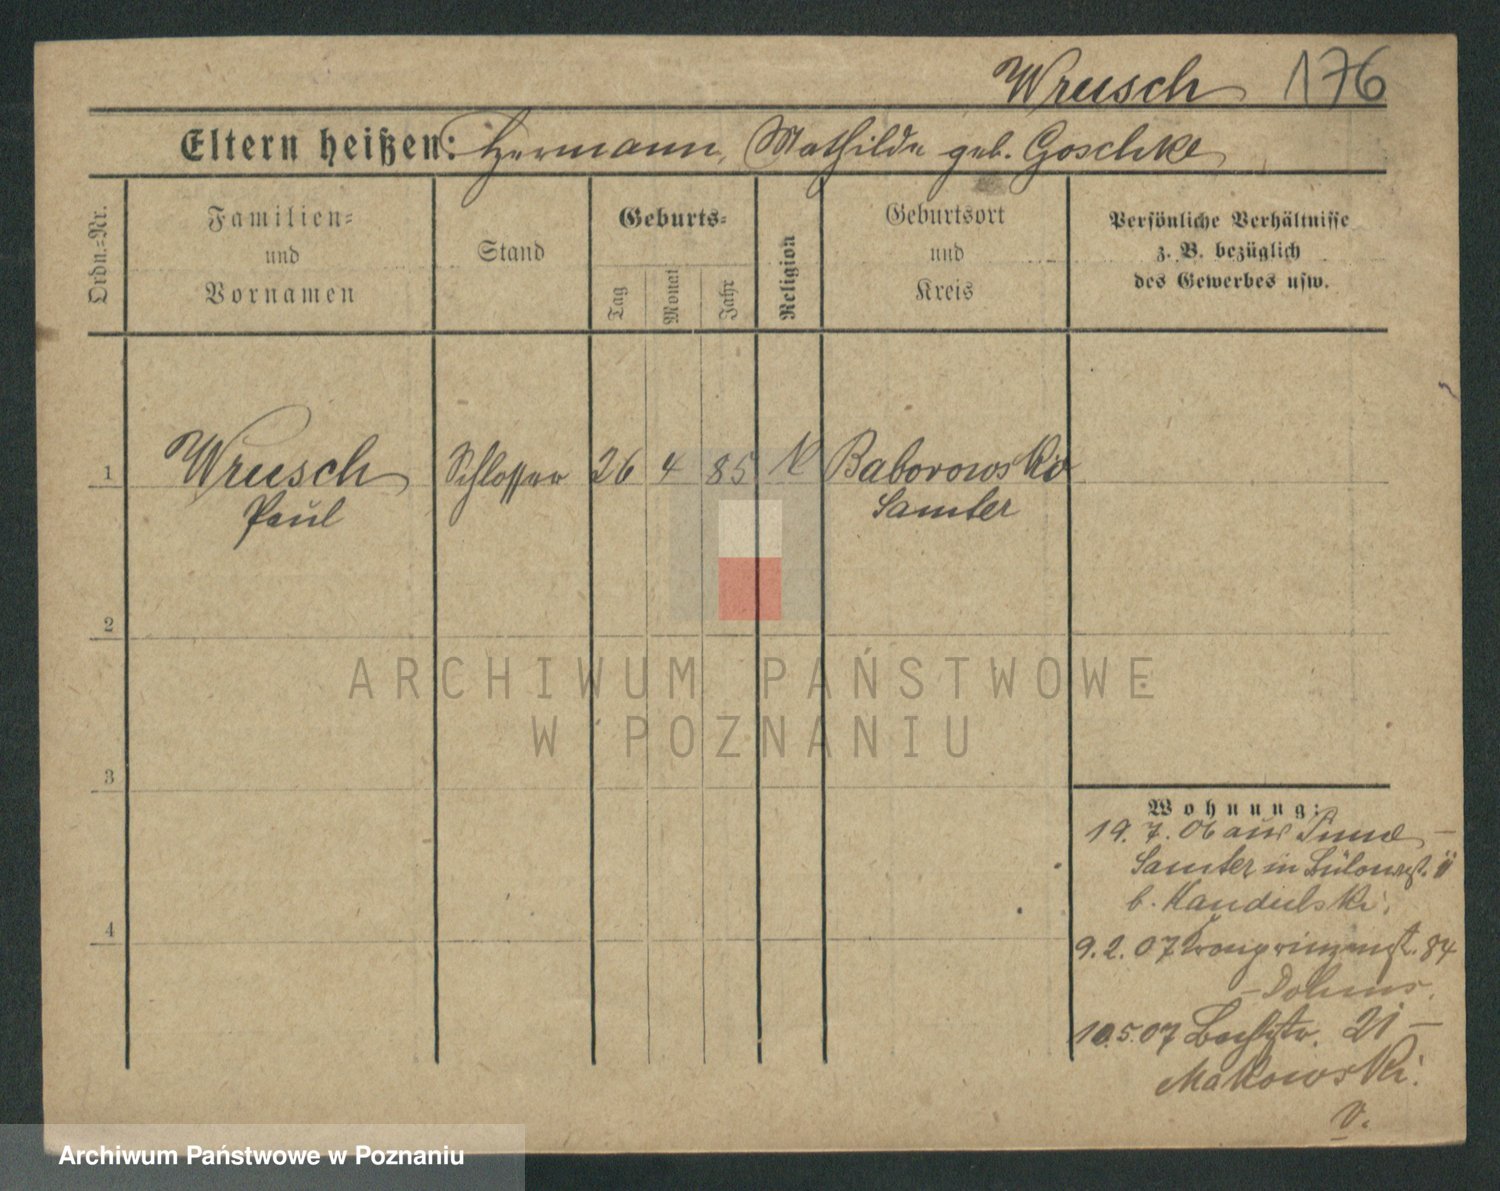 Wrusch 176
Eltern heißen: Hermann, Mathilde geb. Goschke
Ordn.=Nr.
Familien=
und
Vornamen
Stand
Geburts=
Tag
Monat
Jahr
Religion
Geburtsort
und
Kreis
Persönliche Verhältnisse
z. B. bezüglich
des Gewerbes usw.
1 Wrusch Schlosser 26 4 85 K Baborowsko
Paul Samter
2
3
4
Wohnung:
19. 7. 06 aus
Samter in
b. Kandulski.
9. 2. 07 Kronprinzenst. 84
10.5.07 21 –
Makowski.
v.
ARCHIWUM PAŃSTWOWE
W POZNANIU
Archiwum Państwowe w Poznaniu